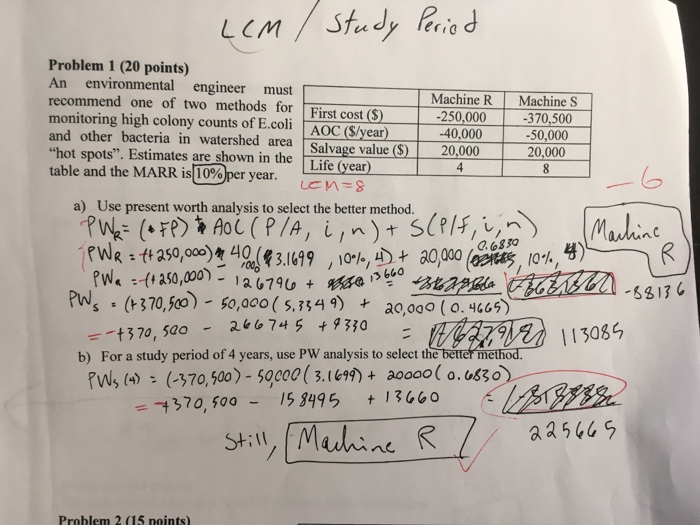 LCM / Study Period
Problem 1 (20 points)
An environmental engineer must
recommend one of two methods for
monitoring high colony counts of E.coli
and other bacteria in watershed area
"hot spots". Estimates are shown in the
table and the MARR is 10% per year.
Machine R Machine S
First cost ($) -250,000 -370,500
AOC ($/year) -40,000 -50,000
Salvage value ($) 20,000 20,000
Life (year) 4 8
LCM=8
-6
a) Use present worth analysis to select the better method.
PWR = (-FP) + AOC (P/A, i, n) + S(P/F, i, n)
Machine R
PWR = (+250,000) 40,000 (3.1699, 10%, 4) + 20,000 (0.6830, 10%, 4)
PWR = (+250,000) - 126796 + 13660
-88136
PWS = (+370,500) - 50,000 (5.3349) + 20,000 (0.4665)
= -+370,500 - 266745 + 9330 = 113085
b) For a study period of 4 years, use PW analysis to select the better method.
PWS (4) = (-370,500) - 50,000 (3.1699) + 20000 (0.6830)
= +370,500 - 158495 + 13660 = 225665
Still, Machine R
Problem 2 (15 points)